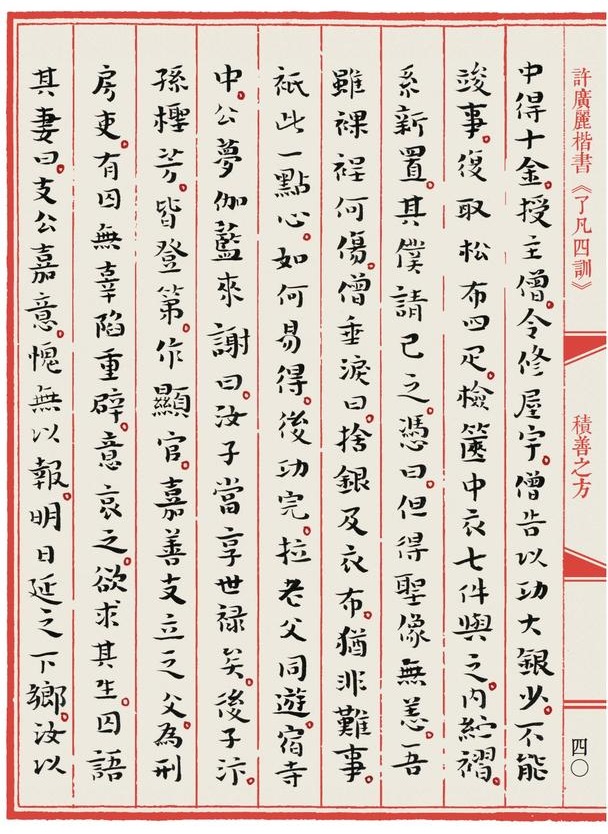 許廣麗楷書《了凡四訓》
積善之方
四〇
中得十金。授主僧。令修屋宇。僧告以功大銀少。不能
竣事。復取松布四疋。檢篋中衣七件與之。內紵褶。
系新置。其僕請已之。憑曰。但得聖像無恙。吾
雖裸裎何傷。僧垂淚曰。捨銀及衣布。猶非難事。
祇此一點心。如何易得。後功完。拉老父同遊。宿寺
中。公夢伽藍來謝曰。汝子當享世祿矣。後子汴。
孫檉芳。皆登第。作顯官。嘉善支立之父。為刑
房吏。有囚無辜陷重辟。意哀之。欲求其生。囚語
其妻曰。支公嘉意。愧無以報。明日延之下鄉。汝以